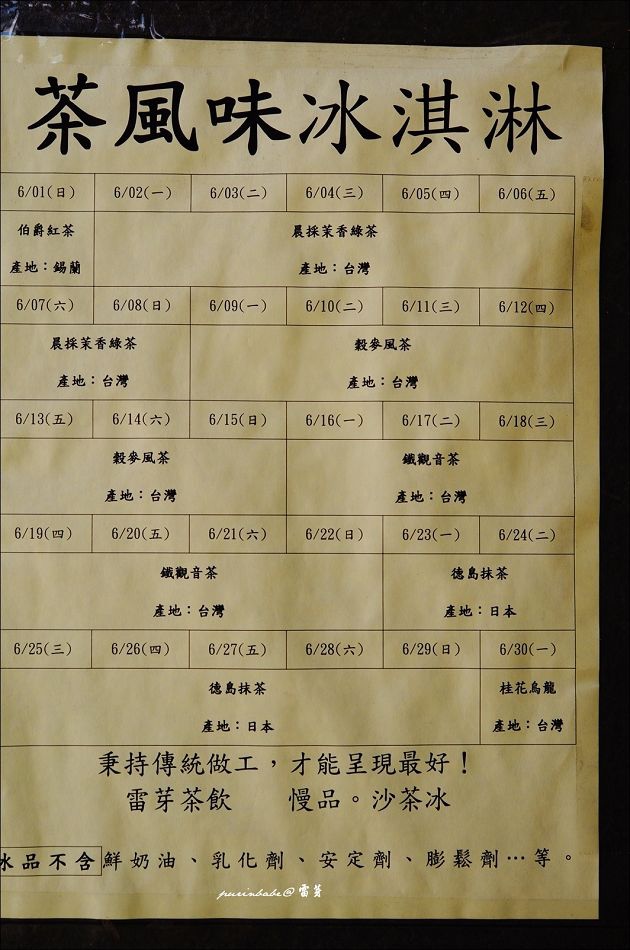 茶風味冰淇淋
6/01(日) 6/02(一) 6/03(二) 6/04(三) 6/05(四) 6/06(五)
伯爵紅茶 晨採茉香綠茶
產地：錫蘭 產地：台灣
6/07(六) 6/08(日) 6/09(一) 6/10(二) 6/11(三) 6/12(四)
晨採茉香綠茶 穀麥風茶
產地：台灣 產地：台灣
6/13(五) 6/14(六) 6/15(日) 6/16(一) 6/17(二) 6/18(三)
穀麥風茶 鐵觀音茶
產地：台灣 產地：台灣
6/19(四) 6/20(五) 6/21(六) 6/22(日) 6/23(一) 6/24(二)
鐵觀音茶 德島抹茶
產地：台灣 產地：日本
6/25(三) 6/26(四) 6/27(五) 6/28(六) 6/29(日) 6/30(一)
德島抹茶 桂花烏龍
產地：日本 產地：台灣
秉持傳統做工，才能呈現最好！
雷芽茶飲 慢品。沙茶冰
冰品不含鮮奶油、乳化劑、安定劑、膨鬆劑…等。
purinbabe@雷芽